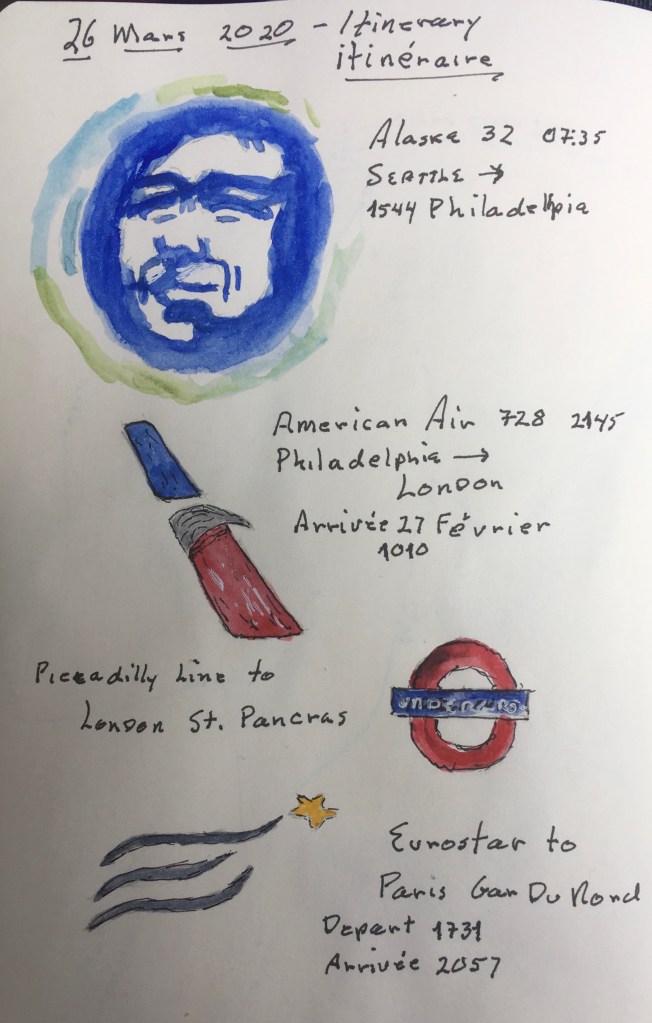 26 Mars 2020 - Itinerary
itinéraire
Alaska 32 07:35
SEATTLE →
1544 Philadelhpia
American Air 728 2145
Philadelphia →
London
Arrivée 27 Février
1010
Piccadilly Line to
London St. Pancras
UNDERGRO
Eurostar to
Paris Gar Du Nord
Depart 1731
Arrivée 2057